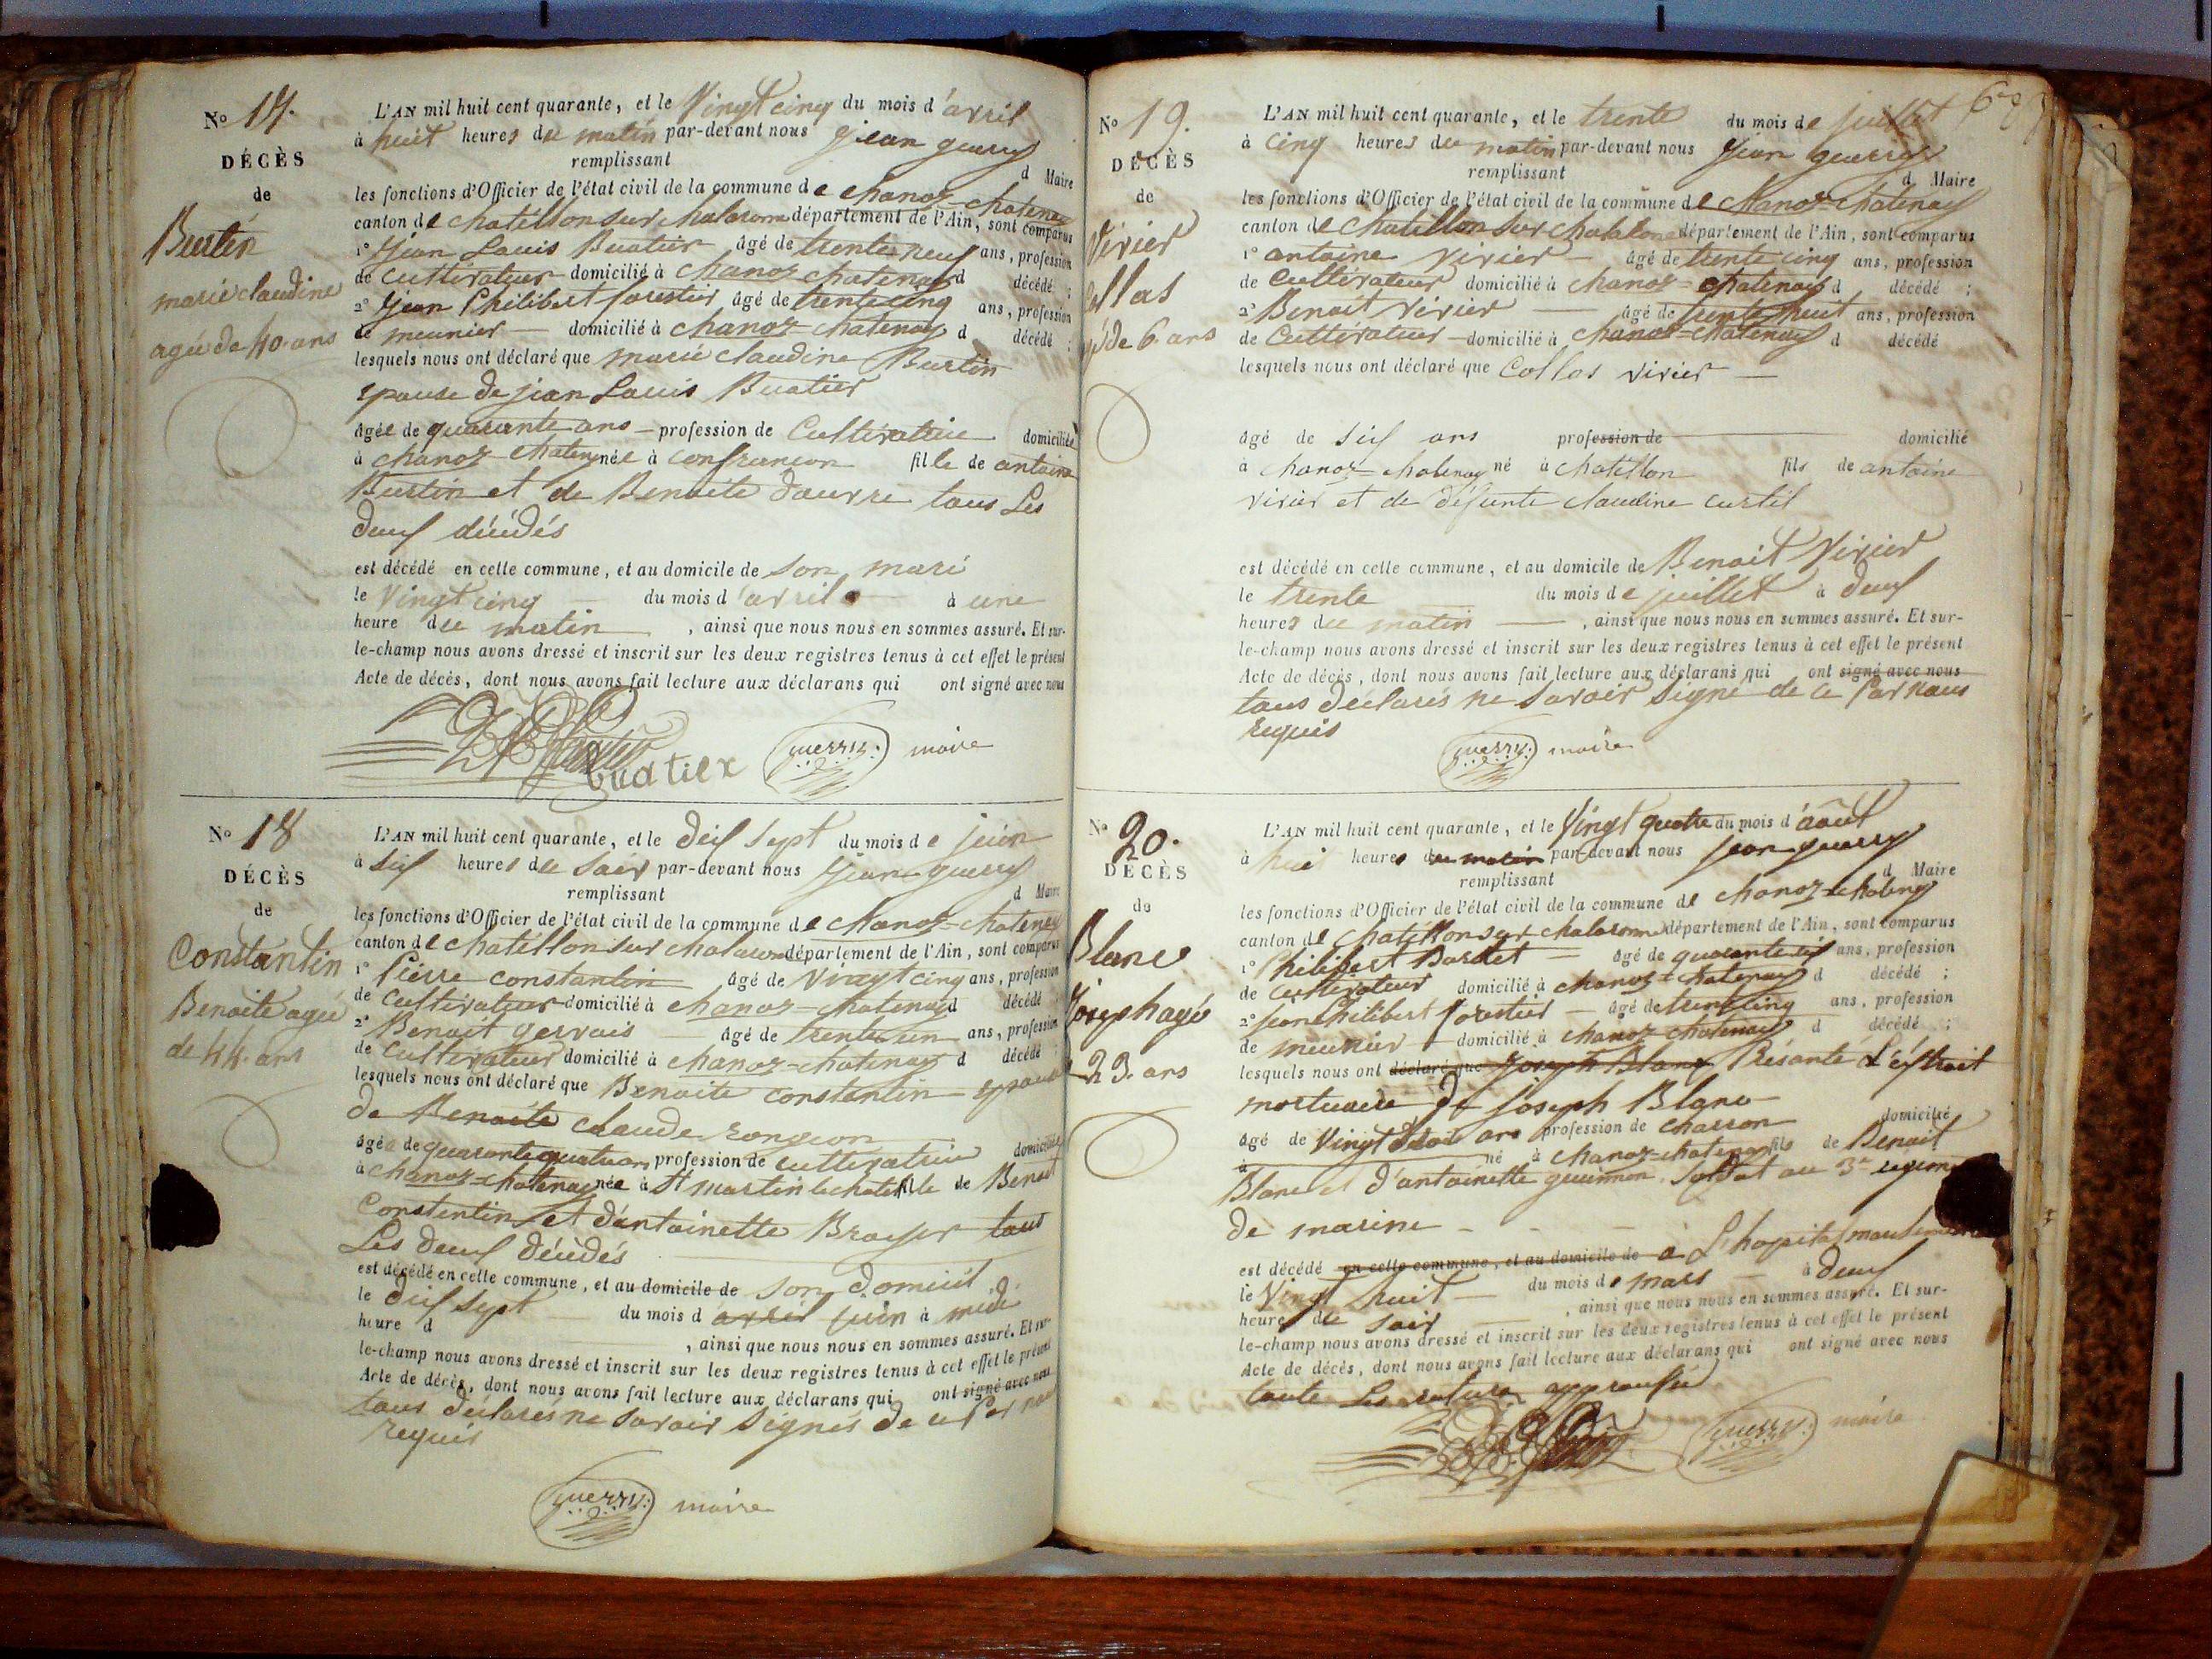 No 17.
DÉCÈS
de
Burtin
marie claudine
agée de 40 ans
L'AN mil huit cent quarante, et le Vingt cinq du mois d'avril
à huit heures du matin par-devant nous jean guerry
remplissant d Maire
les fonctions d'Officier de l'état civil de la commune de chanoz-chatenay
canton de chatillon sur chalaronne département de l'Ain, sont comparus
1° Jean Louis Buatier âgé de trente neuf ans, profession
de cultivateur domicilié à chanoz chatenay d décédé ;
2° Jean Philibert forestier âgé de trente cinq ans, profession
de meunier domicilié à chanoz-chatenay d décédé ;
lesquels nous ont déclaré que marie claudine Burtin
epouse de jean Louis Buatier
âgée de quarante ans profession de Cultivatrice domiciliée
à chanoz chatenay née à confrancon fille de antoine
Burtin et de Benoite dauvre tous Les
deux décédés
est décédé en cette commune, et au domicile de son mari
le Vingt cinq du mois d'avril à une
heure du matin , ainsi que nous nous en sommes assuré. Et sur-
le-champ nous avons dressé et inscrit sur les deux registres tenus à cet effet le présent
Acte de décès, dont nous avons fait lecture aux déclarans qui ont signé avec nous
buatier guerry maire
No 18
DÉCÈS
de
Constantin
Benoite agée
de 44 ans
L'AN mil huit cent quarante, et le dix sept du mois de juin
à six heures du soir par-devant nous jean guerry
remplissant d Maire
les fonctions d'Officier de l'état civil de la commune de chanoz-chatenay
canton de chatillon sur chalaronne département de l'Ain, sont comparus
1° Pierre constantin âgé de Vingt cinq ans, profession
de cultivateur domicilié à chanoz-chatenay d décédé ;
2° Benoit gervais âgé de trente un ans, profession
de cultivateur domicilié à chanoz-chatenay d décédé ;
lesquels nous ont déclaré que Benoite constantin epouse
de Benoite claude rongeon
âgée de quarante quatre ans, profession de cultivatrice domiciliée
à chanoz-chatenay née à St martin le chatel fille de Benoit
Constentin et d'antoinette tous
Les deux décédés
est décédé en cette commune, et au domicile de son domicil
le dix sept du mois d avril juin à midi
heure d , ainsi que nous nous en sommes assuré. Et sur-
le-champ nous avons dressé et inscrit sur les deux registres tenus à cet effet le présent
Acte de décès, dont nous avons fait lecture aux déclarans qui ont signé avec nous
tous déclarés ne savoir signés de ce Par nous
requis
guerry maire
No 19.
DÉCÈS
de
Virier
Collas
agé de 6 ans
L'AN mil huit cent quarante, et le trente du mois de juillet
à cinq heures du matin par-devant nous Jean guerry
remplissant d Maire
les fonctions d'Officier de l'état civil de la commune de chanoz-chatenay
canton de chatillon sur chalalone département de l'Ain, sont comparus
1° antoine virier âgé de trente cinq ans, profession
de cultivateur domicilié à chanoz-chatenay d décédé ;
2° Benoit virier âgé de trente huit ans, profession
de Cultivateur domicilié à chanoz-chatenay d décédé
lesquels nous ont déclaré que Collas virier
âgé de six ans profession de domicilié
à chanoz chatenay né à chatillon fils de antoine
virier et de défunte claudine curtil
est décédé en cette commune, et au domicile de Benoit Virier
le trente du mois de juillet à deux
heures du matin , ainsi que nous nous en sommes assuré. Et sur-
le-champ nous avons dressé et inscrit sur les deux registres tenus à cet effet le présent
Acte de décès, dont nous avons fait lecture aux déclarans qui ont signé avec nous
tous déclarés ne savoir signé de ce Par nous
requis
guerry maire
No 20.
DÉCÈS
de
Blanc
Joseph agé
23 ans
L'AN mil huit cent quarante, et le Vingt quatre du mois d'août
à hui heures du matin par-devant nous jean guerry
remplissant d Maire
les fonctions d'Officier de l'état civil de la commune de chanoz-chateny
canton de chatillon sur chalaronne département de l'Ain, sont comparus
1° Philibert Bardet âgé de quarante six ans, profession
de cultivateur domicilié à chanoz-chatenay d décédé ;
2° jean Philibert forestier âgé de trente cinq ans, profession
de meunier domicilié à chanoz-chatenay d décédé ;
lesquels nous ont déclaré que Joseph Blanc Présanté L'extrait
mortuaire de joseph Blanc
âgé de Vingt trois ans profession de charron domicilié
à né à chanoz-chatenay fils de Benoit
Blanc et d'antoinette guinnon soldat au 3e regiment
de marine
est décédé en cette commune, et au domicile de à L'hopital
le Vingt huit du mois de mars à deux
heures du soir , ainsi que nous nous en sommes assuré. Et sur-
le-champ nous avons dressé et inscrit sur les deux registres tenus à cet effet le présent
Acte de décès, dont nous avons fait lecture aux déclarans qui ont signé avec nous
toute Les rature approuvée
guerry maire